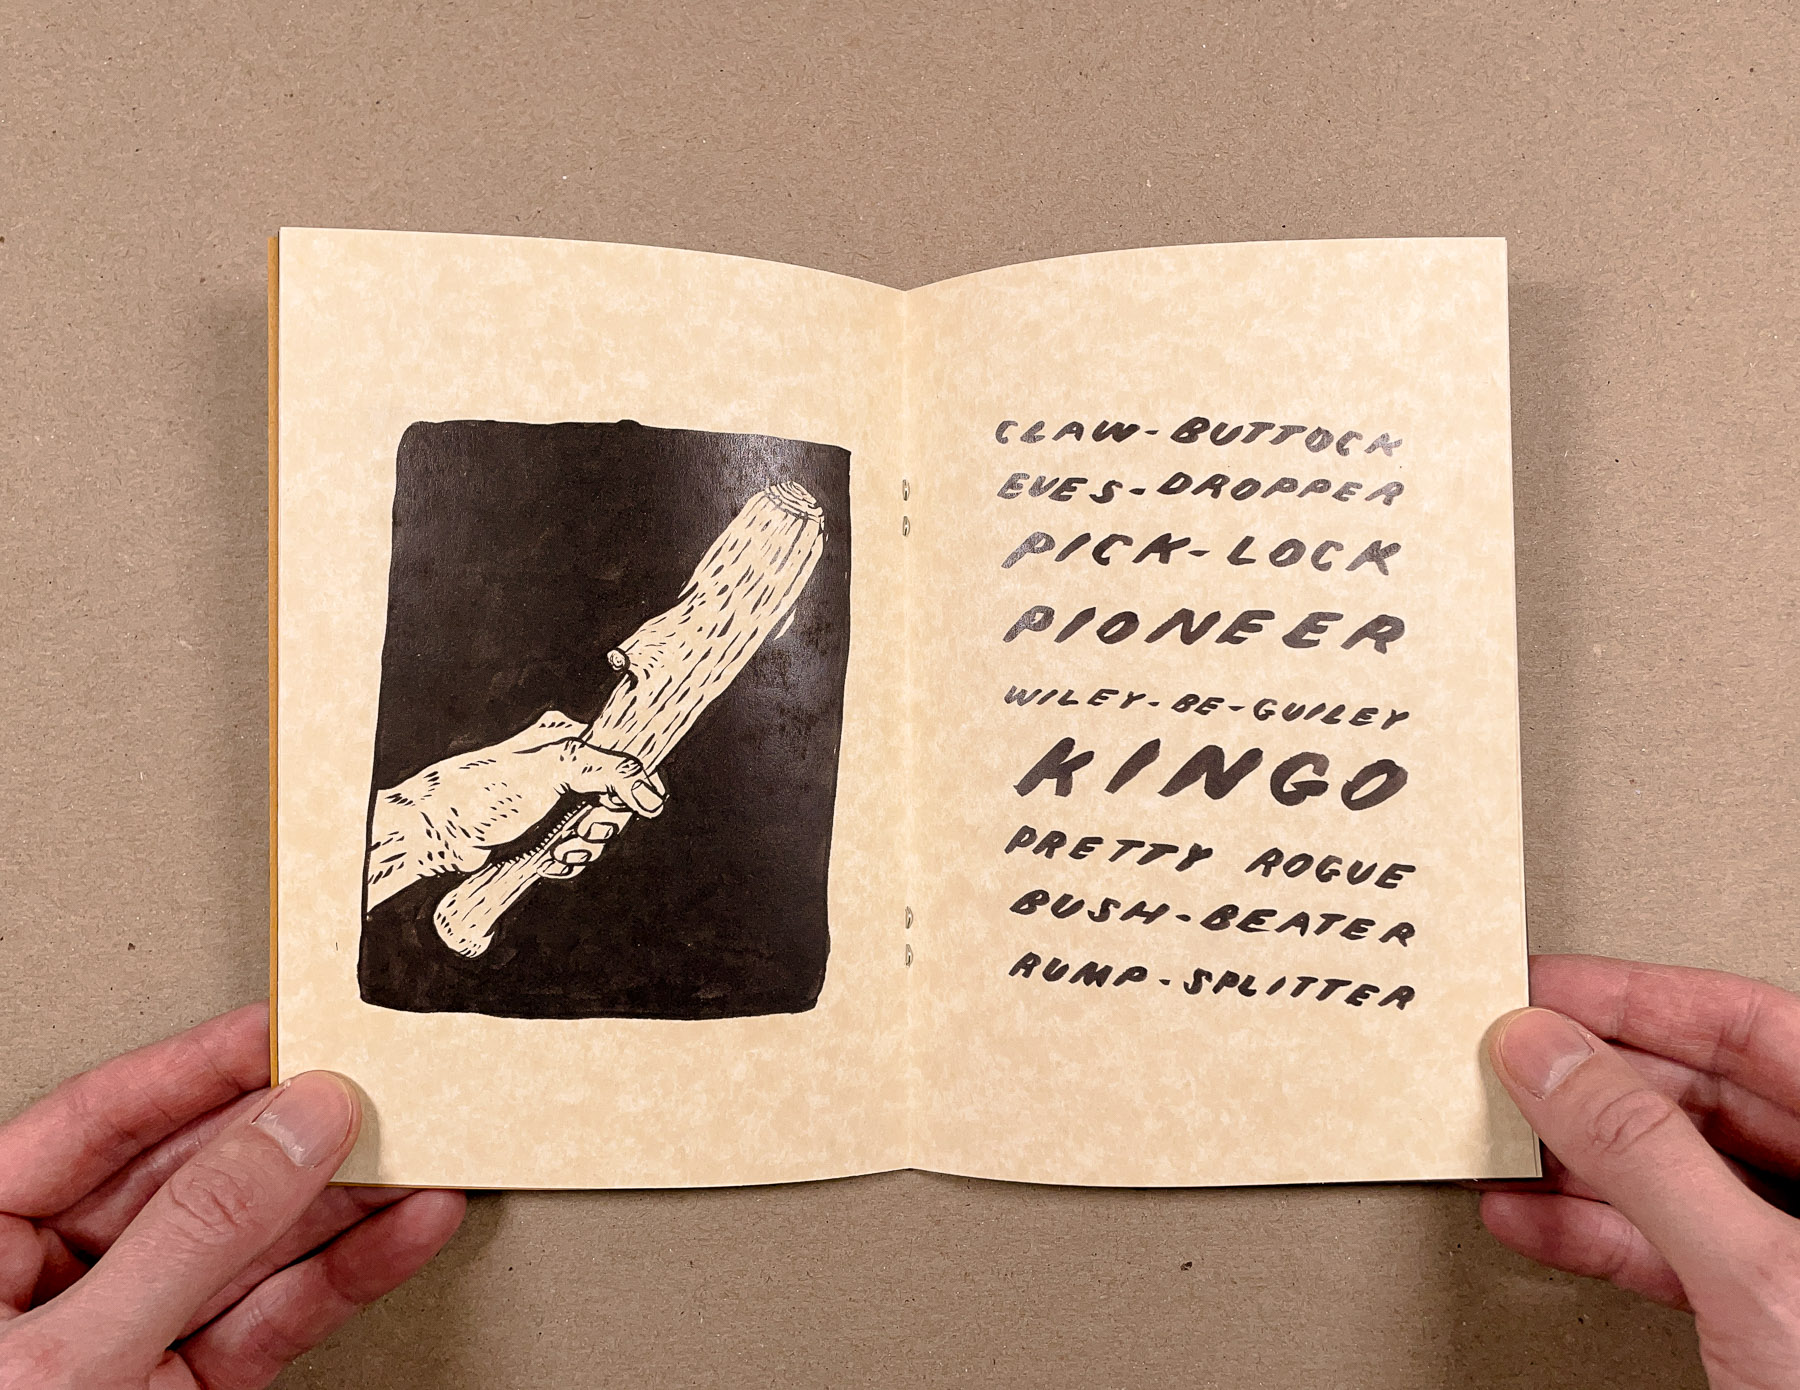 CLAW-BUTTOCK
EVES-DROPPER
PICK-LOCK
PIONEER
WILEY-BE-GUILEY
KINGO
PRETTY ROGUE
BUSH-BEATER
RUMP-SPLITTER